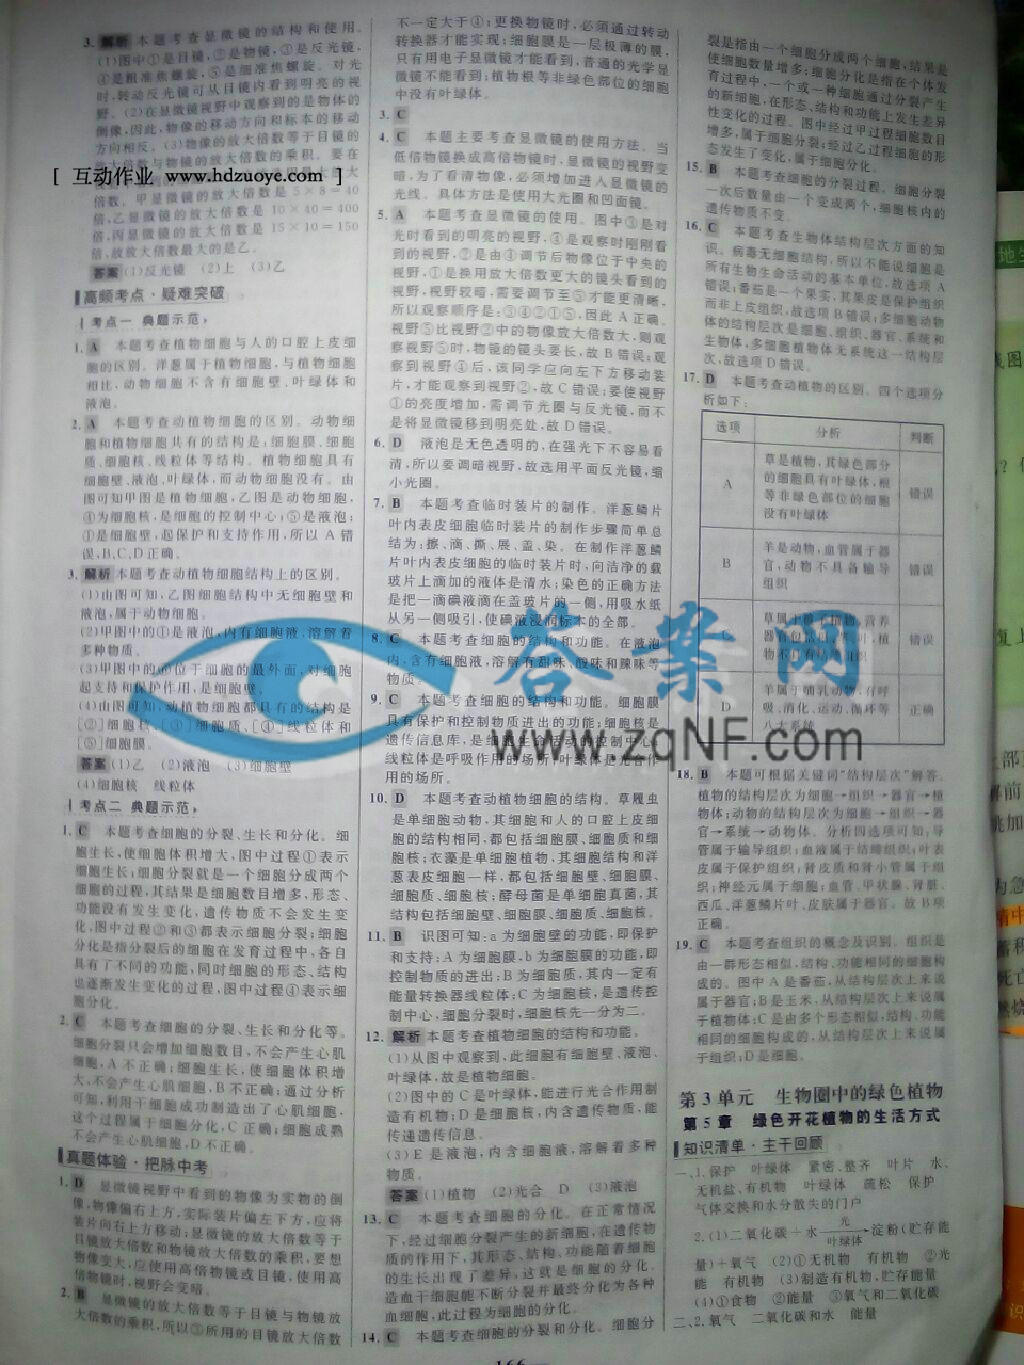 3. 解析 本题考查显微镜的结构和使用。
(1)图中①是目镜,②是物镜,③是反光镜,
④是粗准焦螺旋,⑤是细准焦螺旋。对光
时,转动反光镜可从目镜内看到明亮的视
野。(2)在显微镜视野中观察到的是物体的
倒像,因此,物像的移动方向和标本的移动
方向相反。(3)物像的放大倍数等于目镜的
放大倍数与物镜的放大倍数的乘积。
[ 互动作业 www.hdzuoye.com ]
倍数。甲显微镜的放大倍数是 5×8=40
倍,乙显微镜的放大倍数是 10×40=400
倍,丙显微镜的放大倍数是 15×10=150
倍,故放大倍数最大的是乙。
答案 (1)反光镜 (2)上 (3)乙
高频考点·疑难突破
考点一 典题示范
1. A 本题考查植物细胞与人的口腔上皮细
胞的区别。洋葱属于植物细胞,与植物细胞
相比,动物细胞不含有细胞壁、叶绿体和
液泡。
2. A 本题考查动植物细胞的区别。动物细
胞和植物细胞共有的结构是:细胞膜、细胞
质、细胞核、线粒体等结构。植物细胞具有
细胞壁、液泡、叶绿体,而动物细胞没有。由
图可知甲图是植物细胞,乙图是动物细胞,
④为细胞核,是细胞的控制中心;⑤是液泡;
①是细胞壁,起保护和支持作用,所以 A 错
误,B、C、D 正确。
3. 解析 本题考查动植物细胞结构上的区别。
(1)由图可知,乙图细胞结构中无细胞壁和
液泡,属于动物细胞。
(2)甲图中的①是液泡,内有细胞液,溶解着
多种物质。
(3)甲图中的⑥位于细胞的最外面,对细胞
起支持和保护作用,是细胞壁。
(4)由图可知,动植物细胞都具有的结构是
[②]细胞核、[③]细胞质、[④]线粒体和
[⑤]细胞膜。
答案 (1)乙 (2)液泡 (3)细胞壁
(4)细胞核 线粒体
考点二 典题示范
1. C 本题考查细胞的分裂、生长和分化。细
胞生长,使细胞体积增大,图中过程①表示
细胞生长;细胞分裂就是一个细胞分成两个
细胞的过程,其结果是细胞数目增多,形态、
功能没有发生变化,遗传物质不会发生变
化,图中过程②和③都表示细胞分裂;细胞
分化是指分裂后的细胞在发育过程中,各自
具有了不同的功能,同时细胞的形态、结构
也逐渐发生变化的过程,图中过程④表示细
胞分化。
2. C 本题考查细胞的分裂、生长和分化等。
细胞分裂只会增加细胞数目,不会产生心肌
细胞,A 不正确;细胞生长,使细胞体积增
大,不会产生心肌细胞,B 不正确;通过分析
可知,利用干细胞成功制造出了心肌细胞,
这个过程属于细胞分化,C 正确;细胞成熟
不会产生心肌细胞,D 不正确。
真题体验·把脉中考
1. D 显微镜视野中看到的物像为实物的倒
像,物像偏右上方,实际装片偏左下方,应将
装片向右上方移动;显微镜的放大倍数等于
目镜放大倍数和物镜放大倍数的乘积,要想
物像变大,应使用高倍物镜或目镜,使用高
倍物镜时,视野会变暗。
2. B 显微镜的放大倍数等于目镜与物镜放
大倍数的乘积,所以③所用的目镜放大倍数
不一定大于④;更换物镜时,必须通过转动
转换器才能实现;细胞膜是一层极薄的膜,
只有用电子显微镜才能看到,普通的光学显
微镜不能看到;植物根等非绿色部位的细胞
中没有叶绿体。
3. C
4. C 本题主要考查显微镜的使用方法。当
低倍物镜换成高倍物镜时,显微镜的视野变
暗,为了看清物像,必须增加进入显微镜的
光线。具体方法是使用大光圈和凹面镜。
5. A 本题考查显微镜的使用。图中③是对
光时看到的明亮的视野,④是观察时刚刚看
到的视野,②是由④调节后物像位于中央的
视野,①是换用放大倍数更大的镜头看到的
视野,视野较暗,需要调节至⑤才能更清晰,
所以观察顺序是:③④②①⑤,因此 A 正确。
视野⑤比视野②中的物像放大倍数大,则观
察视野⑤时,物镜的镜头要长,故 B 错误;观
察到视野④后,该同学应向左下方移动装
片,才能观察到视野②,故 C 错误;要使视野
①的亮度增加,需调节光圈与反光镜,而不
是将显微镜移到明亮处,故 D 错误。
6. D 液泡是无色透明的,在强光下不容易看
清,所以要调暗视野,故选用平面反光镜,缩
小光圈。
7. B 本题考查临时装片的制作。洋葱鳞片
叶内表皮细胞临时装片的制作步骤简单总
结为:擦、滴、撕、展、盖、染。在制作洋葱鳞
片叶内表皮细胞的临时装片时,向洁净的载
玻片上滴加的液体是清水;染色的正确方法
是把一滴碘液滴在盖玻片的一侧,用吸水纸
从另一侧吸引,使碘液浸润标本的全部。
8. C 本题考查细胞的结构和功能。在液泡
内,含有细胞液,溶解有甜味、酸味和辣味等
物质。
9. C 本题考查细胞的结构和功能。细胞膜
具有保护和控制物质进出的功能;细胞核是
遗传信息库,是细胞生命活动的控制中心;
线粒体是呼吸作用的场所,叶绿体是光合作
用的场所。
10. D 本题考查动植物细胞的结构。草履虫
是单细胞动物,其细胞和人的口腔上皮细胞
的结构相同,都包括细胞膜、细胞质和细
胞核;衣藻是单细胞植物,其细胞结构和洋
葱表皮细胞一样,都包括细胞壁、细胞膜、
细胞质、细胞核;酵母菌是单细胞真菌,其
结构包括细胞壁、细胞膜、细胞质、细胞核。
11. B 识图可知:a 为细胞壁的功能,即保护
和支持;A 为细胞膜,b 为细胞膜的功能,即
控制物质的进出;B 为细胞质,其内一定有
能量转换器线粒体;C 为细胞核,是遗传控
制中心,细胞分裂时,细胞核先一分为二。
12. 解析 本题考查植物细胞的结构和功能。
(1)从图中观察到,此细胞有细胞壁、液泡、
叶绿体,故是植物细胞。
(2)图中的 C 是叶绿体,能进行光合作用制
造有机物;D 是细胞核,内含遗传物质,能
传递遗传信息。
(3)E 是液泡,内含细胞液,溶解着多种
物质。
答案 (1)植物 (2)光合 D (3)液泡
13. C 本题考查细胞的分化。在正常情况
下,经过细胞分裂产生的新细胞,在遗传物
质的作用下,其形态、结构、功能随着细胞
的生长出现了差异,这就是细胞的分化。
造血干细胞能不断分裂并最终分化为各种
血细胞,此过程为细胞的分化。
14. C 本题考查细胞的分裂和分化。细胞分
裂是指由一个细胞分成两个细胞,结果是
使细胞数量增多;细胞分化是指在个体发
育过程中,一个或一种细胞通过分裂产生
的新细胞,在形态、结构和功能上发生差异
性变化的过程。图中经过甲过程细胞数目
增多,属于细胞分裂;经过乙过程细胞的形
态发生了变化,属于细胞分化。
15. B 本题考查细胞的分裂过程。细胞分裂
一次后数量由一个变成两个,细胞核内的
遗传物质不变。
16. C 本题考查生物体结构层次方面的知
识。病毒无细胞结构,所以不能说细胞是
所有生物生命活动的基本单位,故选项 A
错误;番茄是一个果实,其果皮是保护组织
而非上皮组织,故选项 B 错误;多细胞动物
体的结构层次是细胞、组织、器官、系统和
生物体,多细胞植物体无系统这一结构层
次,故选项 D 错误。
17. D 本题考查动植物的区别。四个选项分
析如下:
选项 分析 判断
A 草是植物,其绿色部分的细胞具有叶绿体,根等非绿色部位的细胞没有叶绿体 错误
B 羊是动物,血管属于器官,动物不具备输导组织 错误
错误
D 羊属于哺乳动物,有呼吸、消化、运动、循环等八大系统 正确
18. B 本题可根据关键词“结构层次”解答。
植物的结构层次为细胞→组织→器官→植
物体;动物的结构层次为细胞→组织→器
官→系统→动物体。分析四选项可知,导
管属于输导组织;血液属于结缔组织;叶表
皮属于保护组织;肾皮质和肾小管属于组
织;神经元属于细胞;血管、甲状腺、肾脏、
西瓜、洋葱鳞片叶、皮肤属于器官。故 B 项
正确。
19. C 本题考查组织的概念及识别。组织是
由一群形态相似,结构、功能相同的细胞构
成的。图中 A 是番茄,从结构层次上来说
属于器官;B 是玉米,从结构层次上来说属
于植物体;C 是由多个形态相似,结构、功能
相同的细胞构成的,从结构层次上来说属
于组织;D 是细胞。
第 3 单元 生物圈中的绿色植物
第 5 章 绿色开花植物的生活方式
知识清单·主干回顾
一、1. 保护 叶绿体 紧密、整齐 叶片 水、
无机盐、有机物 叶绿体 疏松 保护
气体交换和水分散失的门户
2. (1)二氧化碳+水 光 叶绿体 → 淀粉(贮存能
量)+氧气 (2)①无机物 有机物 ②光
能 有机物 (3)制造有机物,贮存能量
(4)①食物 ②能量 ③氧气和二氧化碳
二、2. 氧气 二氧化碳和水 能量
答案网
www.zqNF.com
166